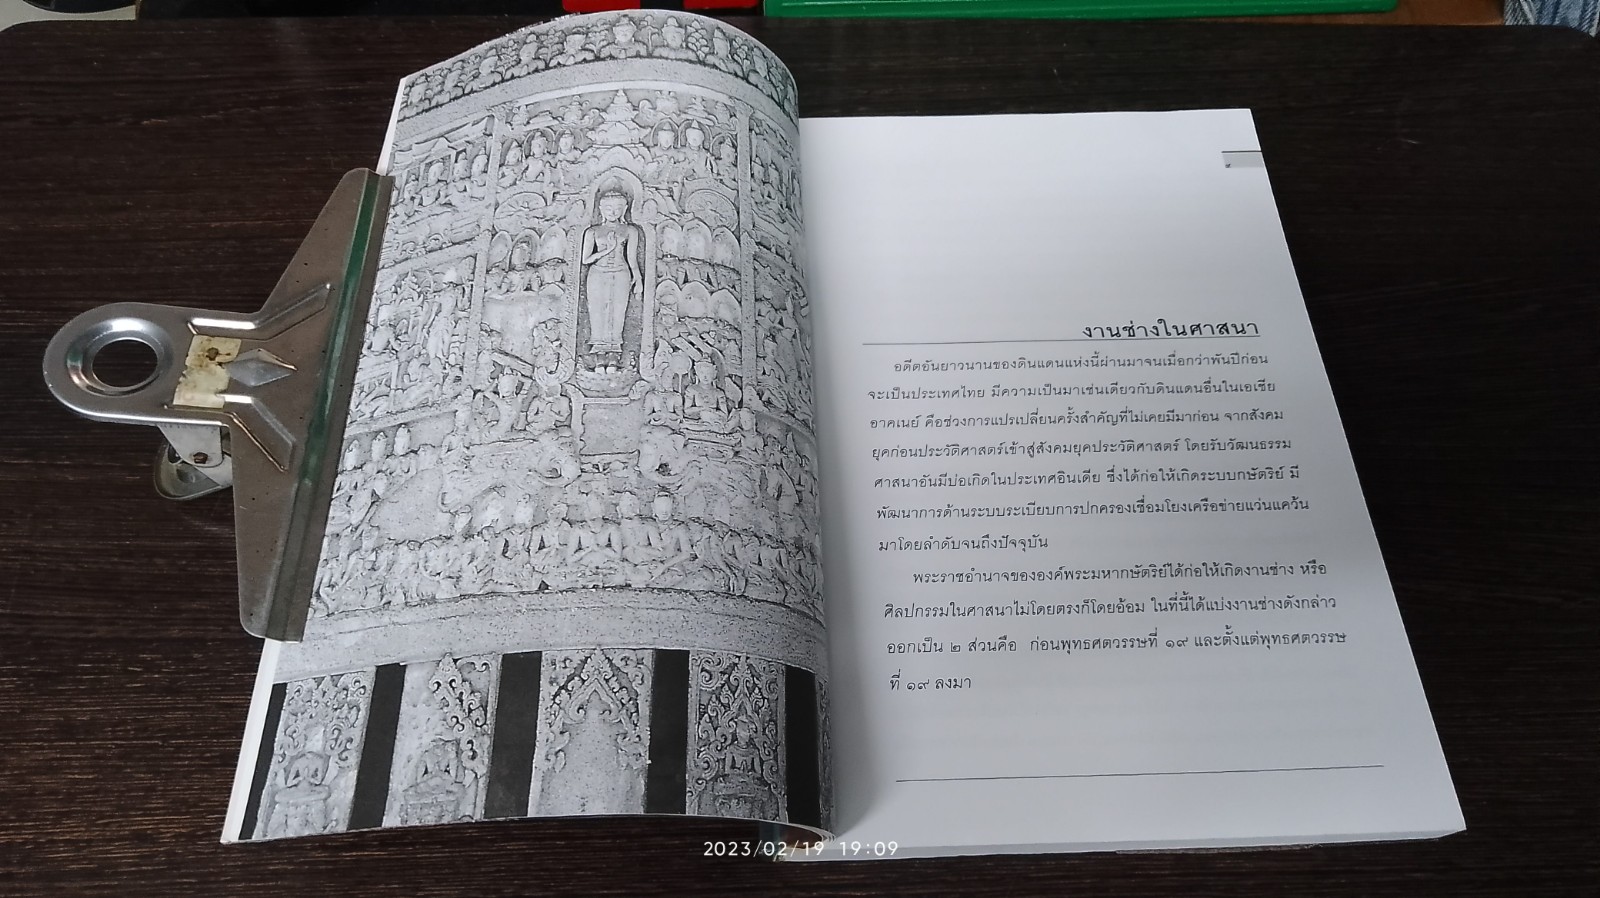 งานช่างในศาสนา
อดีตอันยาวนานของดินแดนแห่งนี้ผ่านมาจนเมื่อกว่าพันปีก่อน
จะเป็นประเทศไทย มีความเป็นมาเช่นเดียวกับดินแดนอื่นในเอเชีย
อาคเนย์ คือช่วงการแปรเปลี่ยนครั้งสำคัญที่ไม่เคยมีมาก่อน จากสังคม
ยุคก่อนประวัติศาสตร์เข้าสู่สังคมยุคประวัติศาสตร์ โดยรับวัฒนธรรม
ศาสนาอันมีบ่อเกิดในประเทศอินเดีย ซึ่งได้ก่อให้เกิดระบบกษัตริย์ มี
พัฒนาการด้านระบบระเบียบการปกครองเชื่อมโยงเครือข่ายแว่นแคว้น
มาโดยลำดับจนถึงปัจจุบัน
พระราชอำนาจขององค์พระมหากษัตริย์ได้ก่อให้เกิดงานช่าง หรือ
ศิลปกรรมในศาสนาไม่โดยตรงก็โดยอ้อม ในที่นี้ได้แบ่งงานช่างดังกล่าว
ออกเป็น ๒ ส่วนคือ ก่อนพุทธศตวรรษที่ ๑๙ และตั้งแต่พุทธศตวรรษ
ที่ ๑๙ ลงมา
2023/02/19 19:09